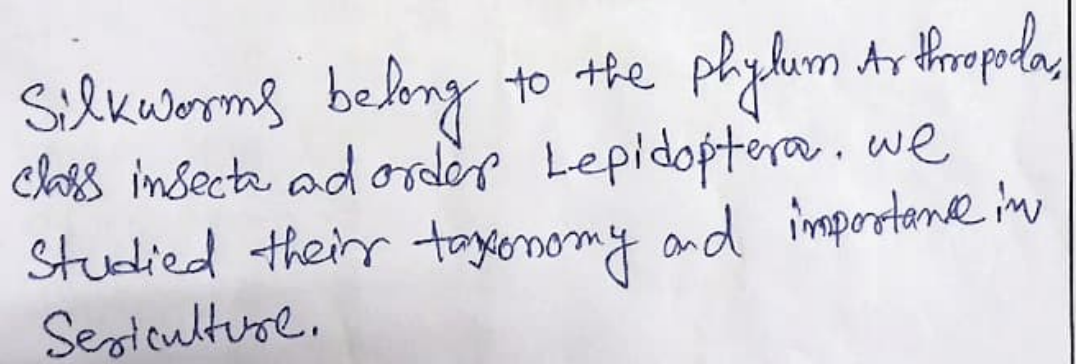 Silkworms belong to the phylum Arthropoda,
class insecta ad order Lepidoptera. we
Studied their taxonomy and importance in
Sericulture.